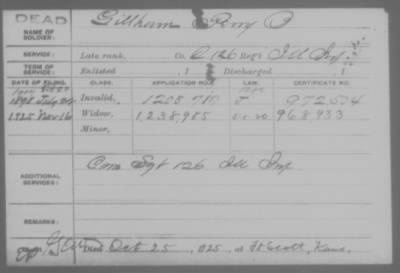 DEAD
NAME OF SOLDIER: Gillham, Perry
SERVICE: Late rank, Co. 126 Reg't Ill Inf
TERM OF SERVICE: Enlisted , 1 Discharged , 1
DATE OF FILING. CLASS. APPLICATION NO. CERTIFICATE NO.
1898 Invalid,
1925 Nov 16 Widow, 1,238,985 968,933
Minor,
ADDITIONAL SERVICES: Com Sgt 126 Ill Inf
REMARKS:
Died Oct 25, 1925, at Ft Scott, Kans.